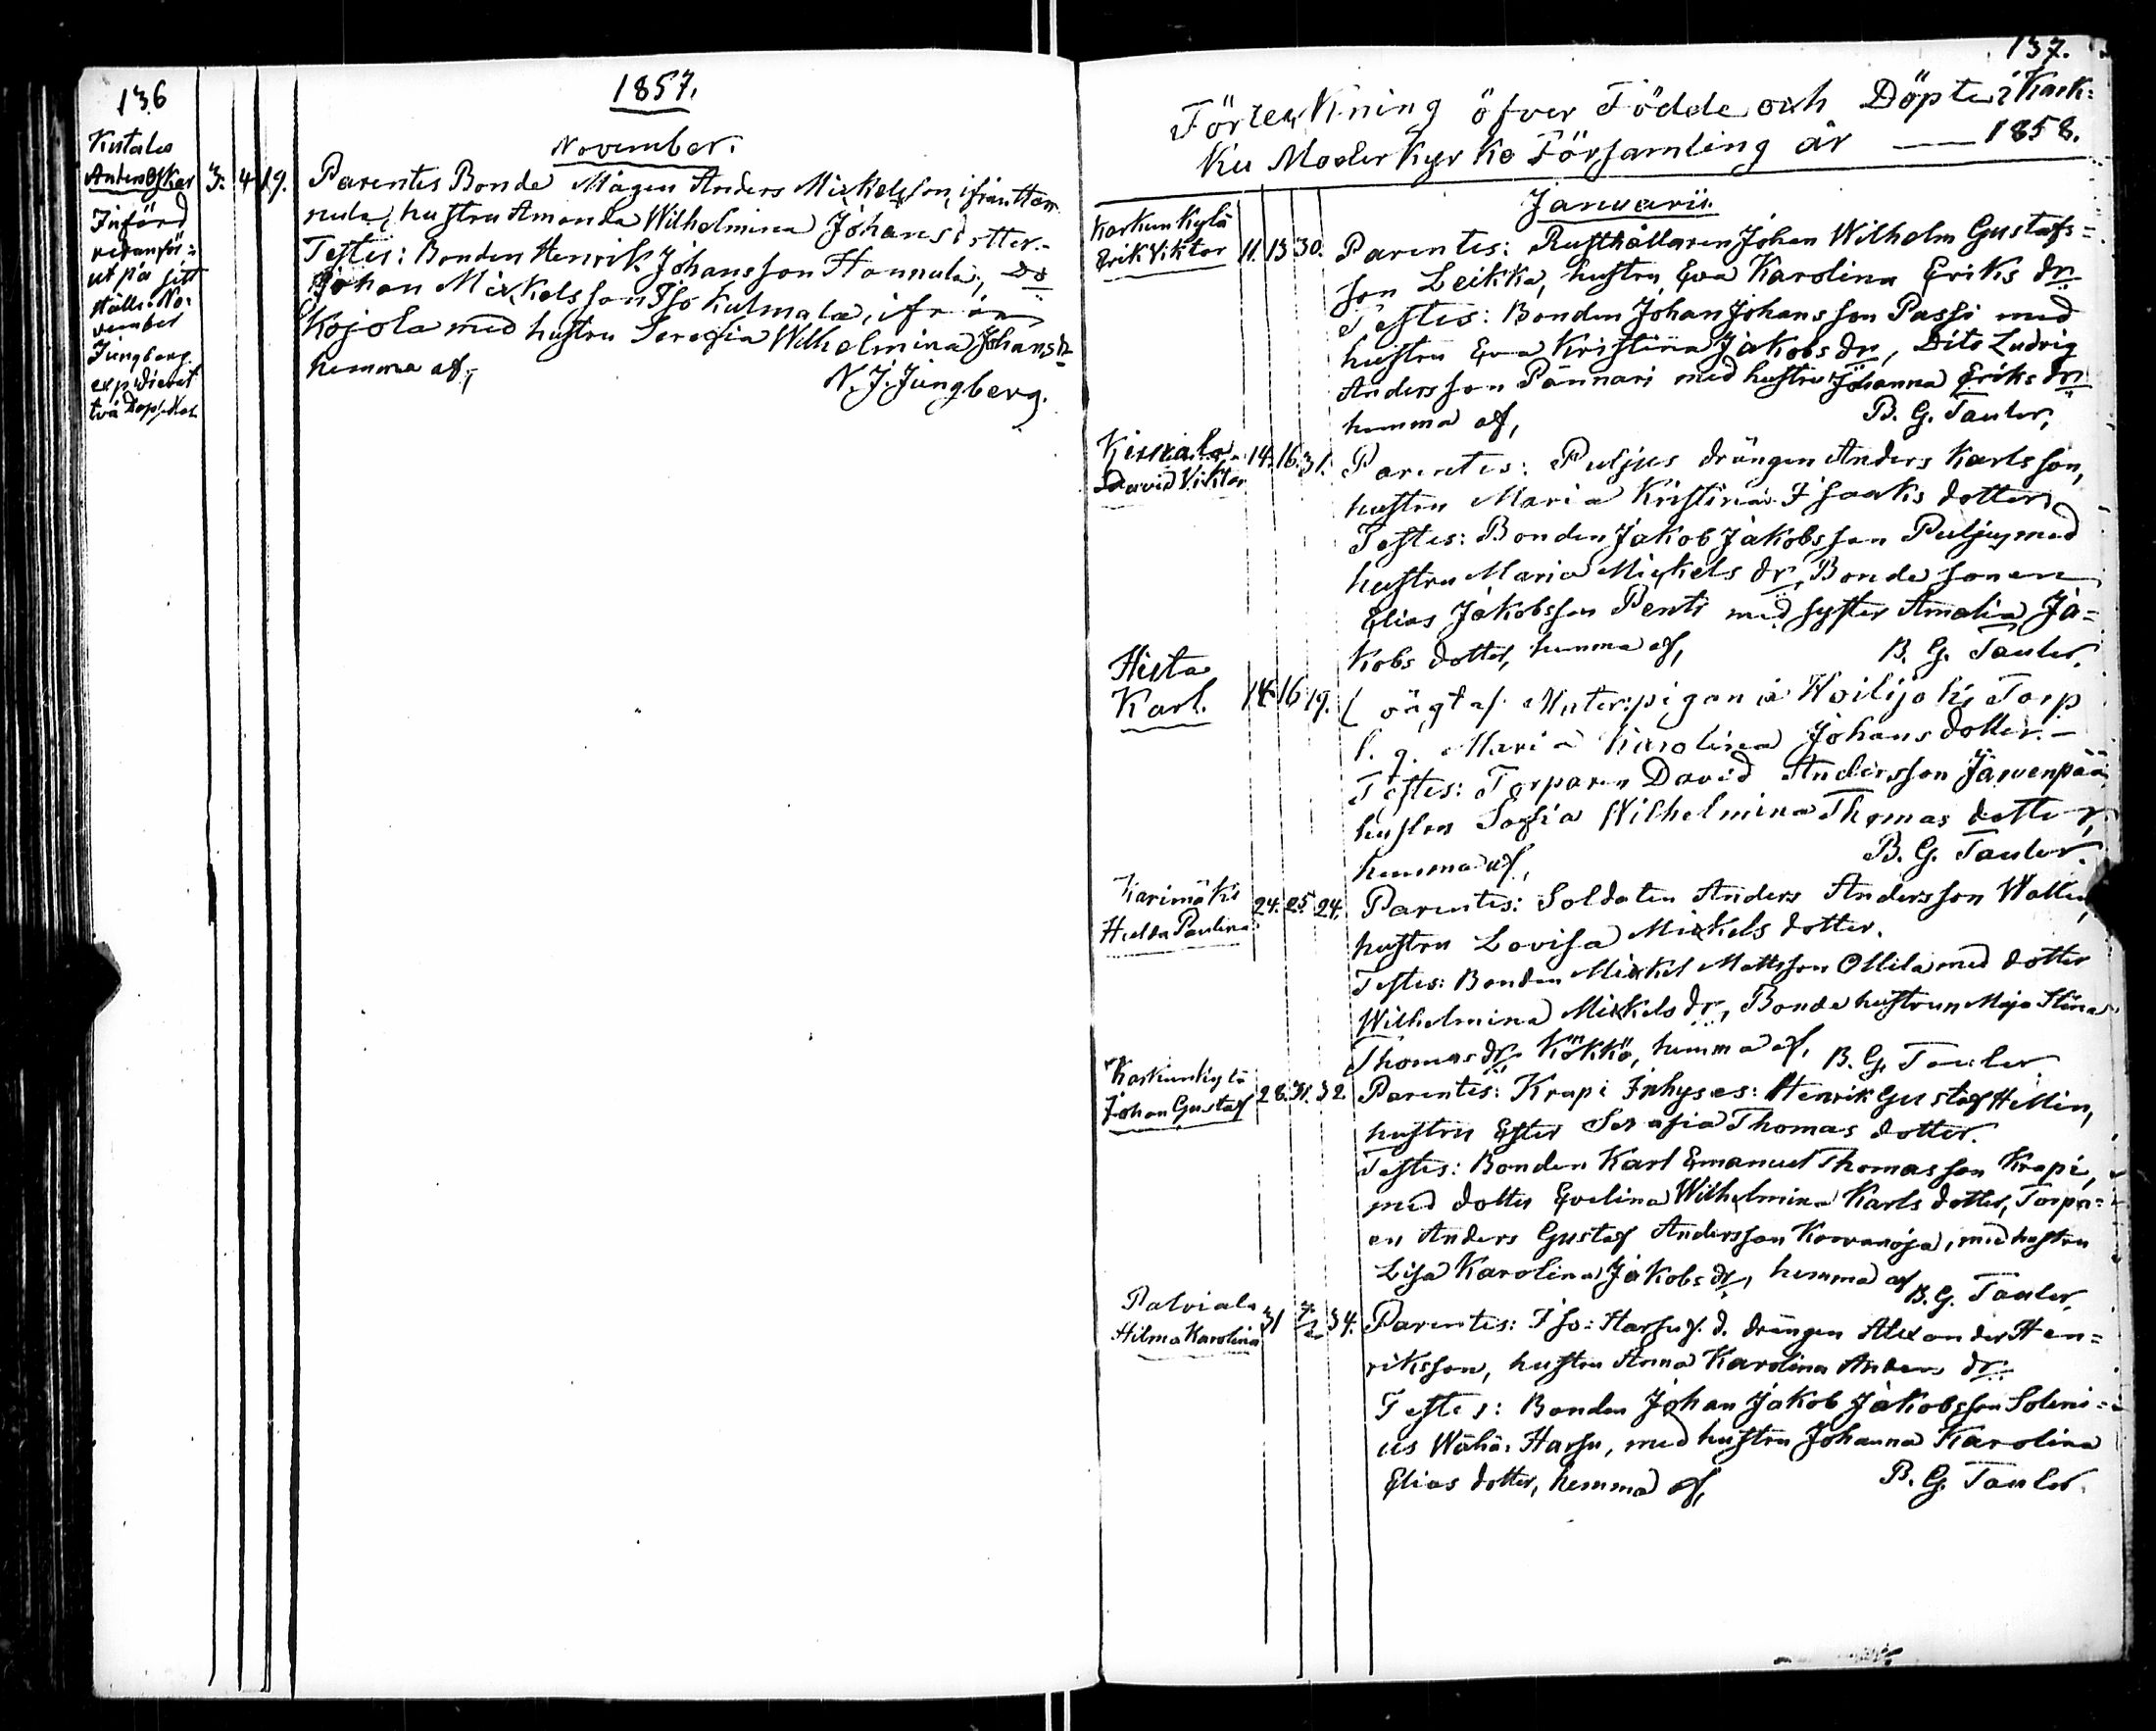 136
1857.
November.
Kutala
Anton Oskar 3. 4 19.
Införd
ut på sitt
ställe No-
vember
Jungberg
expedierat
två
Parentes Bonde Mågen Anders Mickelsson, ifrån Han
nula, hustru Amanda Wilhelmina Johansdotter.-
Testes: Bonden Henrik Johansson Hannula, Do
Johan Mickelsson Iso Kulmala, ifrån
Kojola med hustru Serafia Wilhelmina Johansdr
hemma af,
N. J. Jungberg.
137.
Förteckning öfver Födde och Döpte i Kark-
ku Moderkyrko Församling år — 1858.
Januarii.
Karkunkylä
Erik Viktor 11. 13 30. Parentes: Rusthållaren Johan Wilhelm Gustafs=
son Leikka, hustru Eva Karolina Eriks dr
Testes: Bonden Johan Johansson Passi med
hustru Eva Kristina Jakobs dr, Dito Ludvig
Andersson Pännäri med hustru Johanna Eriks dr
hemma af, B. G. Tauler,
Kiurala
David Viktor 14. 16. 31. Parentes: Puljus drängen Anders Karlsson,
hustru Maria Kristina Isaaks dotter,
Testes: Bonden Jakob Jakobsson Puljus med
hustru Maria Mickels dr, Bonde sonen
Elias Jakobsson Penti med syster Amalia Ja=
kobs dotter, hemma af, B. G. Tauler.
Heita
Karl. 14. 16 19. oägt af pigan i Woilijoki Torp
l. q. Maria Karolina Johans dotter.-
Testes: Torparen David Andersson Järvenpää,
hustru Sofia Wilhelmina Thomas dotter,
hemma af, B. G. Tauler.
Karimäki
Hulda Paulina 24. 25. 24. Parentes: Soldaten Anders Andersson
hustru Lovisa Mickels dotter.
Testes: Bonden Mickel Mattsson Ollila med dotter
Wilhelmina Mickels dr, Bonde hustrun Maja Stina
Thomas dr Kökkö, hemma af, B. G. Tauler.
Karkunkylä
Johan Gustaf 28. 31. 32. Parentes: Krapi Inhyses: Henrik Gustaf Hellin,
hustru Ester Serafia Thomas dotter.
Testes: Bonden Karl Emanuel Thomasson Krapi,
med dotter Evelina Wilhelmina Karls dotter, Torpa=
en Anders Gustaf Andersson Korvanoja, med hustru
Lisa Karolina Jakobs dr, hemma af B. G. Tauler,
Palviala
Hilma Karolina 31 7/2 34. Parentes: Iso-Harsu f. d. drängen Alexander Hen=
riksson, hustru Anna Karolina Anders dr.
Testes: Bonden Johan Jakob Jakobsson Soleni=
us Wähä-Harsu, med hustru Johanna Karolina
Elias dotter, hemma af, B. G. Tauler.